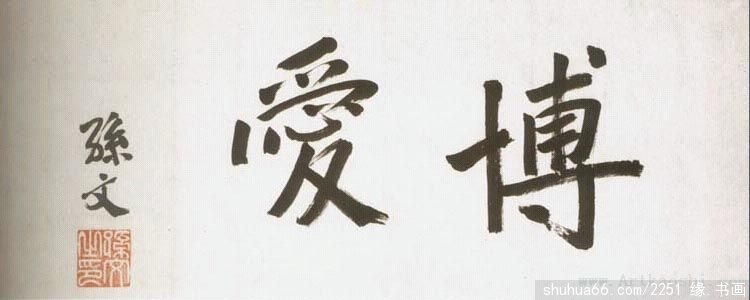 博愛
孫文
孫文之印
shuhua66.com/2251 缘.书画